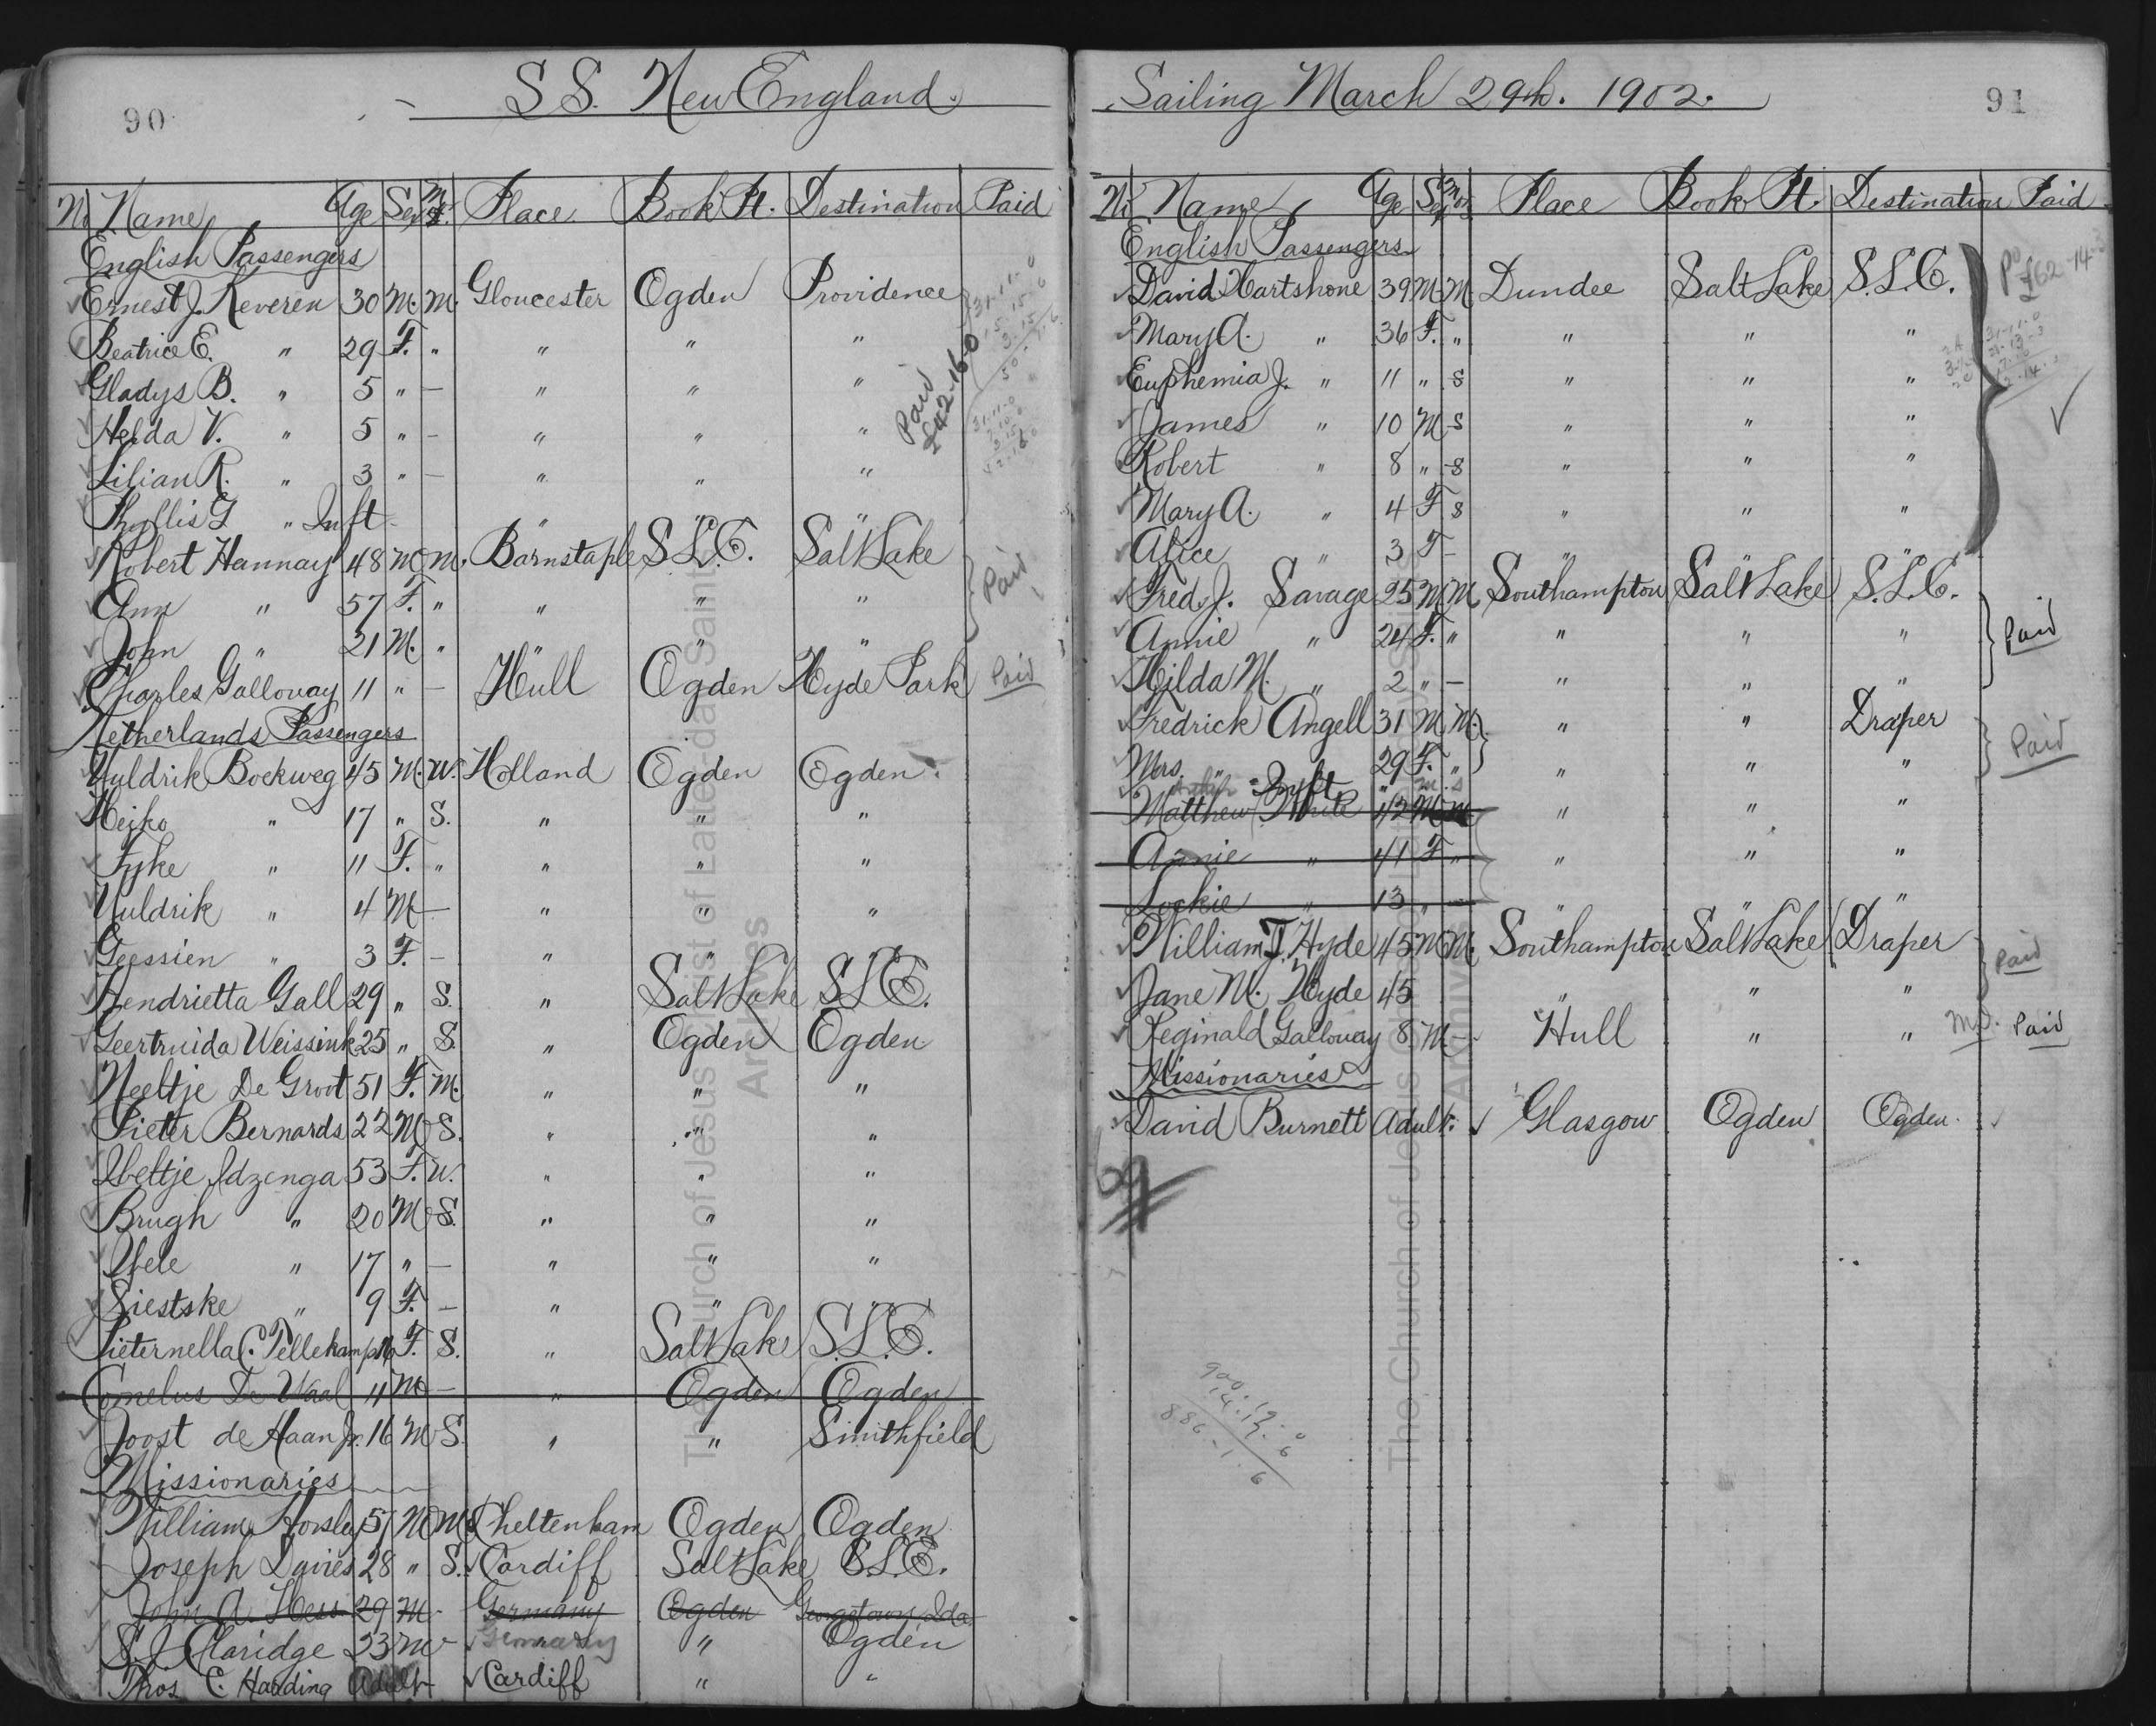 90
S.S. New England.
No Name Age Sex M or S. Place Book Pt. Destination Paid
English Passengers
Ernest J. Keveren 30 M. M. Gloucester Ogden Providence
Beatrice E. " 29 F. " " " "
Gladys B. " 5 " — " " "
Helda V. " 5 " — " " "
Paid £42-16-0
Lilian R. " 3 " — " " "
Phyllis G " Inft " " "
Robert Hannay 48 M M. Barnstaple S.L.C. Salt Lake
Ann " 57 F. " " " " Paid
John " 21 M. " " " "
Charles Gallouay 11 " — Hull Ogden Hyde Park Paid
Netherlands Passengers
Uuldrik Bockweg 45 M. W. Holland Ogden Ogden.
Heiko " 17 " S. " " "
Fyke " 11 F. " " " "
Uuldrik " 4 M — " " "
Geessien " 3 F. — " " "
Hendrietta Gall 29 " S. " Salt Lake S.L.C.
Geertruida Weissink 25 " S. " Ogden Ogden
Neeltje De Groot 51 F. M. " " "
Pieter Bernards 22 M S. " " "
Ibeltje Idzenga 53 F. W. " " "
Brugh " 20 M S. " " "
Ybele " 17 " — " " "
Sietske " 9 F. — " " "
Pieternella C. Pellekamp 16 F. S. " Salt Lake S.L.C.
Cornelus De Waal 11 M — " Ogden Ogden
Joost de Haan Jr. 16 M S. " " Smithfield
Missionaries
William Horsley 57 M M Cheltenham Ogden Ogden
Joseph Davies 28 " S. Cardiff Salt Lake S.L.C.
John A. Hess 29 M. Germany Ogden Georgetown Ida.
S. J. Claridge 23 M Germany " Ogden
Thos. C. Harding Adult Cardiff " "
Sailing March 29th. 1902.
91
No Name Age Sex M or S Place Book Pt. Destination Paid
English Passengers
David Hartshone 39 M M Dundee Salt Lake S.L.C. Pd £62-14-3
Mary A. " 36 F. " " " "
Euphemia J. " 11 " S " " "
James " 10 M S " " "
Robert " 8 " S " " "
Mary A. " 4 F S " " "
Alice " 3 F — " " "
Fred. J. Savage 25 M M Southampton Salt Lake S.L.C.
Annie " 24 F. " " " " Paid
Hilda M. " 2 " — " " "
Fredrick Angell 31 M M. " " Draper
Mrs. " 29 F. " " " " Paid
Inft M. S
Matthew White 42 M M " " "
Annie " 41 F " " " "
Lockie " 13 " — " " "
William J. Hyde 45 M M. Southampton Salt Lake Draper
Jane M. Hyde 45 " " " Paid
Reginald Gallouay 8 M — Hull " " Paid
Missionaries
David Burnett Adult. Glasgow Ogden Ogden.
69
900.19.0
14.17.6
886-1.6